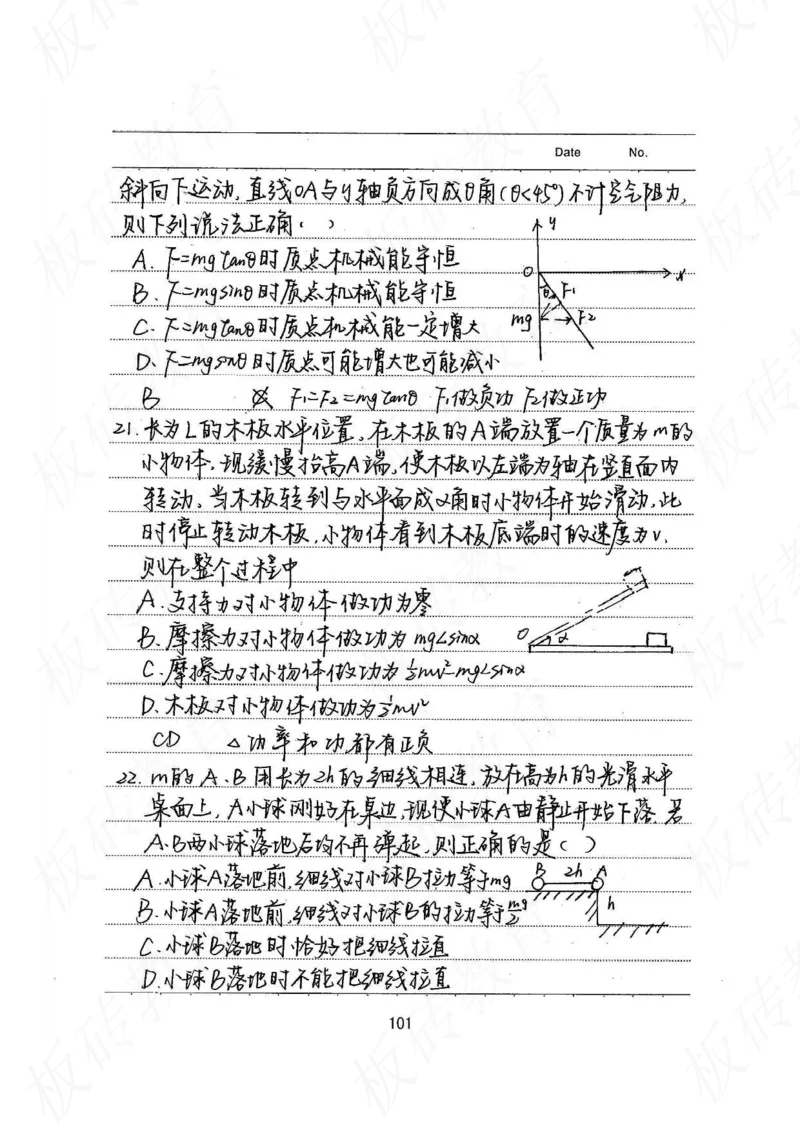 Date No.
斜向下运动,直线OA与y轴负方向成θ角(θ<45°)不计空气阻力,
则下列说法正确( )
A. F=mgtanθ时质点机械能守恒
B. F=mgsinθ时质点机械能守恒
C. F=mgtanθ时质点机械能一定增大
D. F=mgsinθ时质点可能增大也可能减小
y
O
x
θ
F1
mg
F2
B F1=F2=mgtanθ F1做负功 F2做正功
21.长为L的木板水平位置,在木板的A端放置一个质量为m的
小物体,现缓慢抬高A端,使木板以左端为轴在竖直面内
转动,当木板转到与水平面成α角时小物体开始滑动,此
时停止转动木板,小物体看到木板底端时的速度为v,
则在整个过程中
A.支持力对小物体做功为零
B.摩擦力对小物体做功为mgLsinα
C.摩擦力对小物体做功为½mv²-mgLsinα
D.木板对小物体做功为½mv²
O α
CD △功率和功都有正负
22. m的A.B用长为2h的细线相连,放在高为h的光滑水平
桌面上,A小球刚好在桌边,现使小球A由静止开始下落,若
A.B两小球落地后均不再弹起,则正确的是( )
A.小球A落地前,细线对小球B拉力等于mg
B.小球A落地前,细线对小球B的拉力等于mg/2
C.小球B落地时恰好把细线拉直
D.小球B落地时不能把细线拉直
B 2h A
h
101
板砖教育